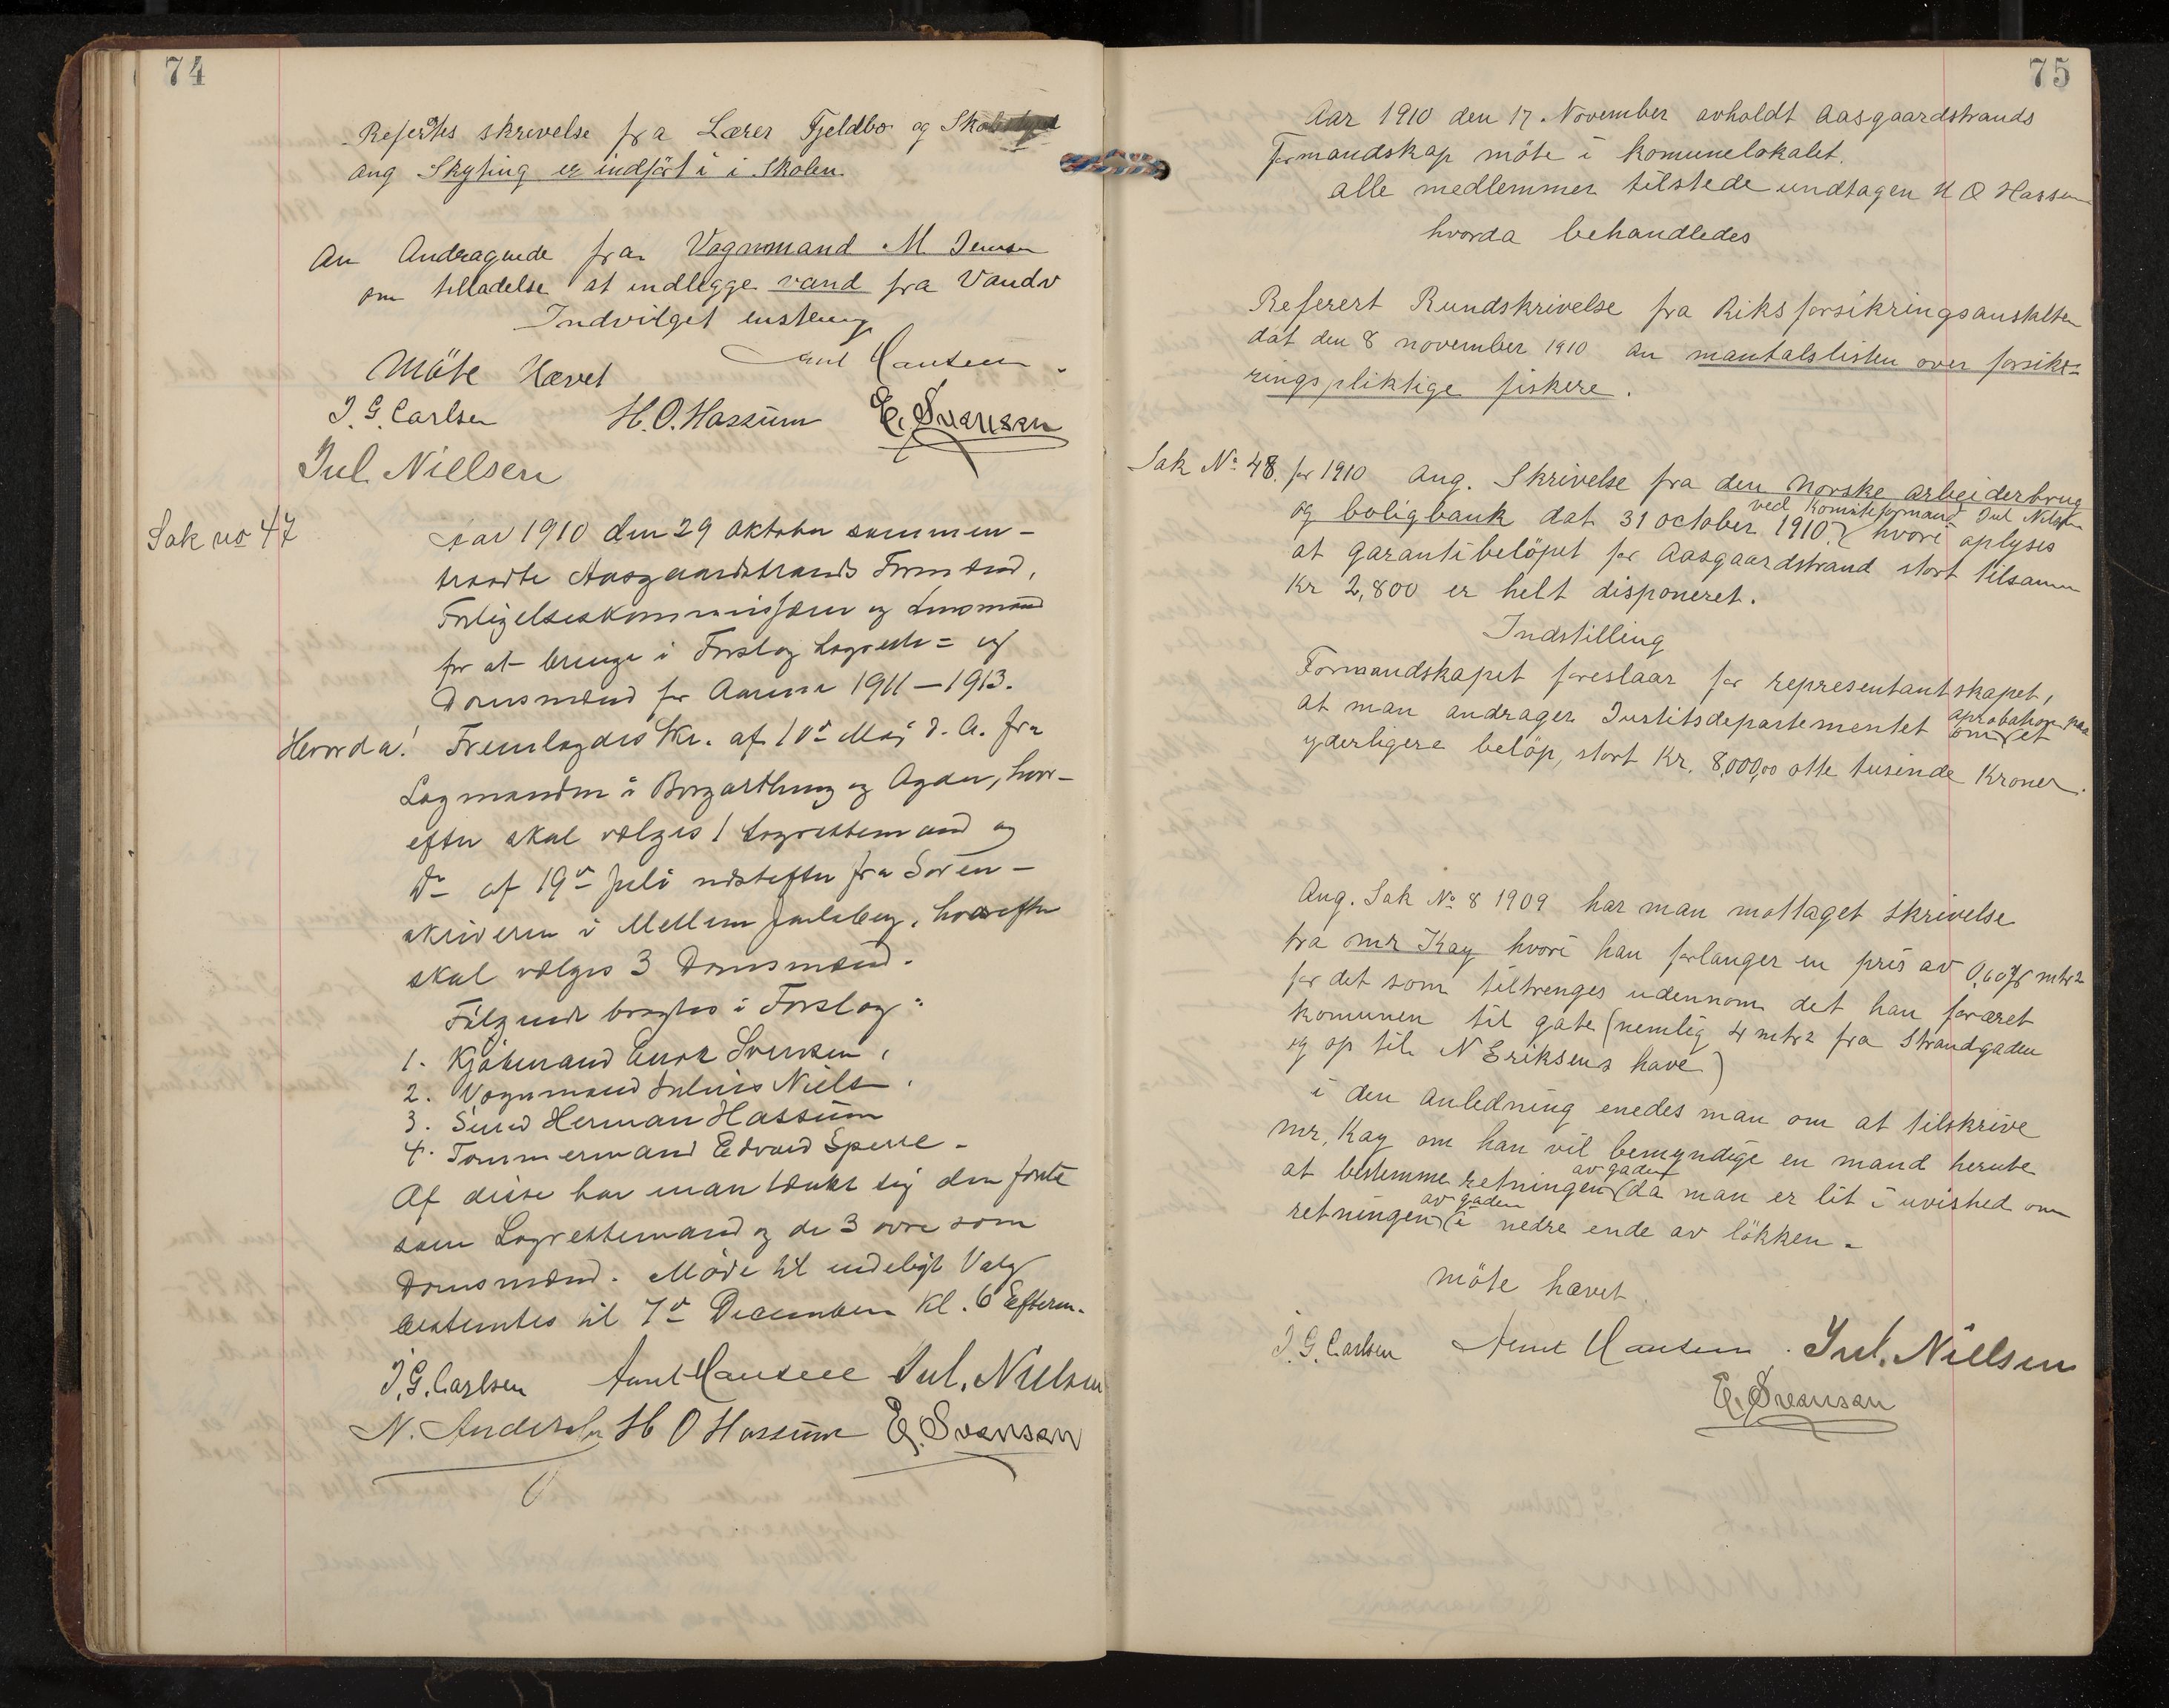 74
Refertes skrivelse fra Lærer Fjeldbo og
ang Skyting er indført i i Skolen
An Andragende fra Vognmand M. Jensen
om tilladelse at indlegge vand fra Vandv
Indvilget enstemig
Møte Hævet Arnt Hansen.
J. G. Carlsen H. O. Hassum E. Svensen
Jul. Nielsen
Sak no 47
Aar 1910 den 29 Oktober sammen-
traadte Aasgaardstrands Formænd,
Forligelseskommissærer og Lensmand
for at bringe i Forslag Lagrette= og
Domsmænd for Aarene 1911-1913.
Hvorda! Fremlagdes Skr. af 10de Maj d. A. fra
Lagmanden i Borgarthing og Agder, hvor-
efter skal vælges 1 Lagrettemand og
Do af 19de Juli næstefter fra Soren-
skriveren i Mellem Jarlsberg, hvorefter
skal vælges 3 Domsmænd.
Følgende bragtes i Forslag:
1. Kjøbmand Svensen,
2. Vognmand Julius Niels
3. Herman Hassum
4. Tømmermand Edvard Sperre.
Af disse har man tænkt sig den første
som Lagrettemand og de 3 øvre som
Domsmænd. Møde til endeligt Valg
bestemtes til 7de December Kl. 6 Efterm.
J. G. Carlsen Arnt Hansen Jul. Nielsen
N. Andersen H O Hassum E. Svensen
75
Aar 1910 den 17. November avholdt Aasgaardstrands
Formandskap möte i Komunelokalet.
alle medlemmer tilstede undtagen H O Hassum
hvorda behandledes
Referert Rundskrivelse fra Riksforsikringsanstalten
dat den 8 november 1910 an mantalslisten over forsik=
ringspliktige fiskere.
Sak No 48. for 1910 Ang. Skrivelse fra den Norske arbeiderbrug
ved Komiteformand Jul Nilsen
og boligbank dat 31 october 1910. hvori oplyses
at garantibelöpet for Aasgaardstrand stort tilsamm
Kr 2,800 er helt disponeret.
Indstilling
Formandskapet foreslaar for representantskapet,
at man andrager Justitsdepartementet om et
aprobation paa
yderligere belöp, stort Kr. 8,000,00 otte tusinde Kroner.
Ang. Sak No 8 1909 har man mottaget skrivelse
fra mr Kay hvori han forlanger en pris av 0,60 mtr2
for det som tiltrenges udennom det han foræret
Komunen til gate (nemlig 4 mtr2 fra Strandgaden
og op til N Eriksens have)
i den anledning enedes man om at tilskrive
mr. Kay om han vil bemyndige en mand herute
av gaden
at bestemme retningen da man er lit i uvished om
av gaden
retningen i nedre ende av lökken.
möte hævet
J. G. Carlsen Arnt Hansen. Jul. Nielsen
E. Svensen